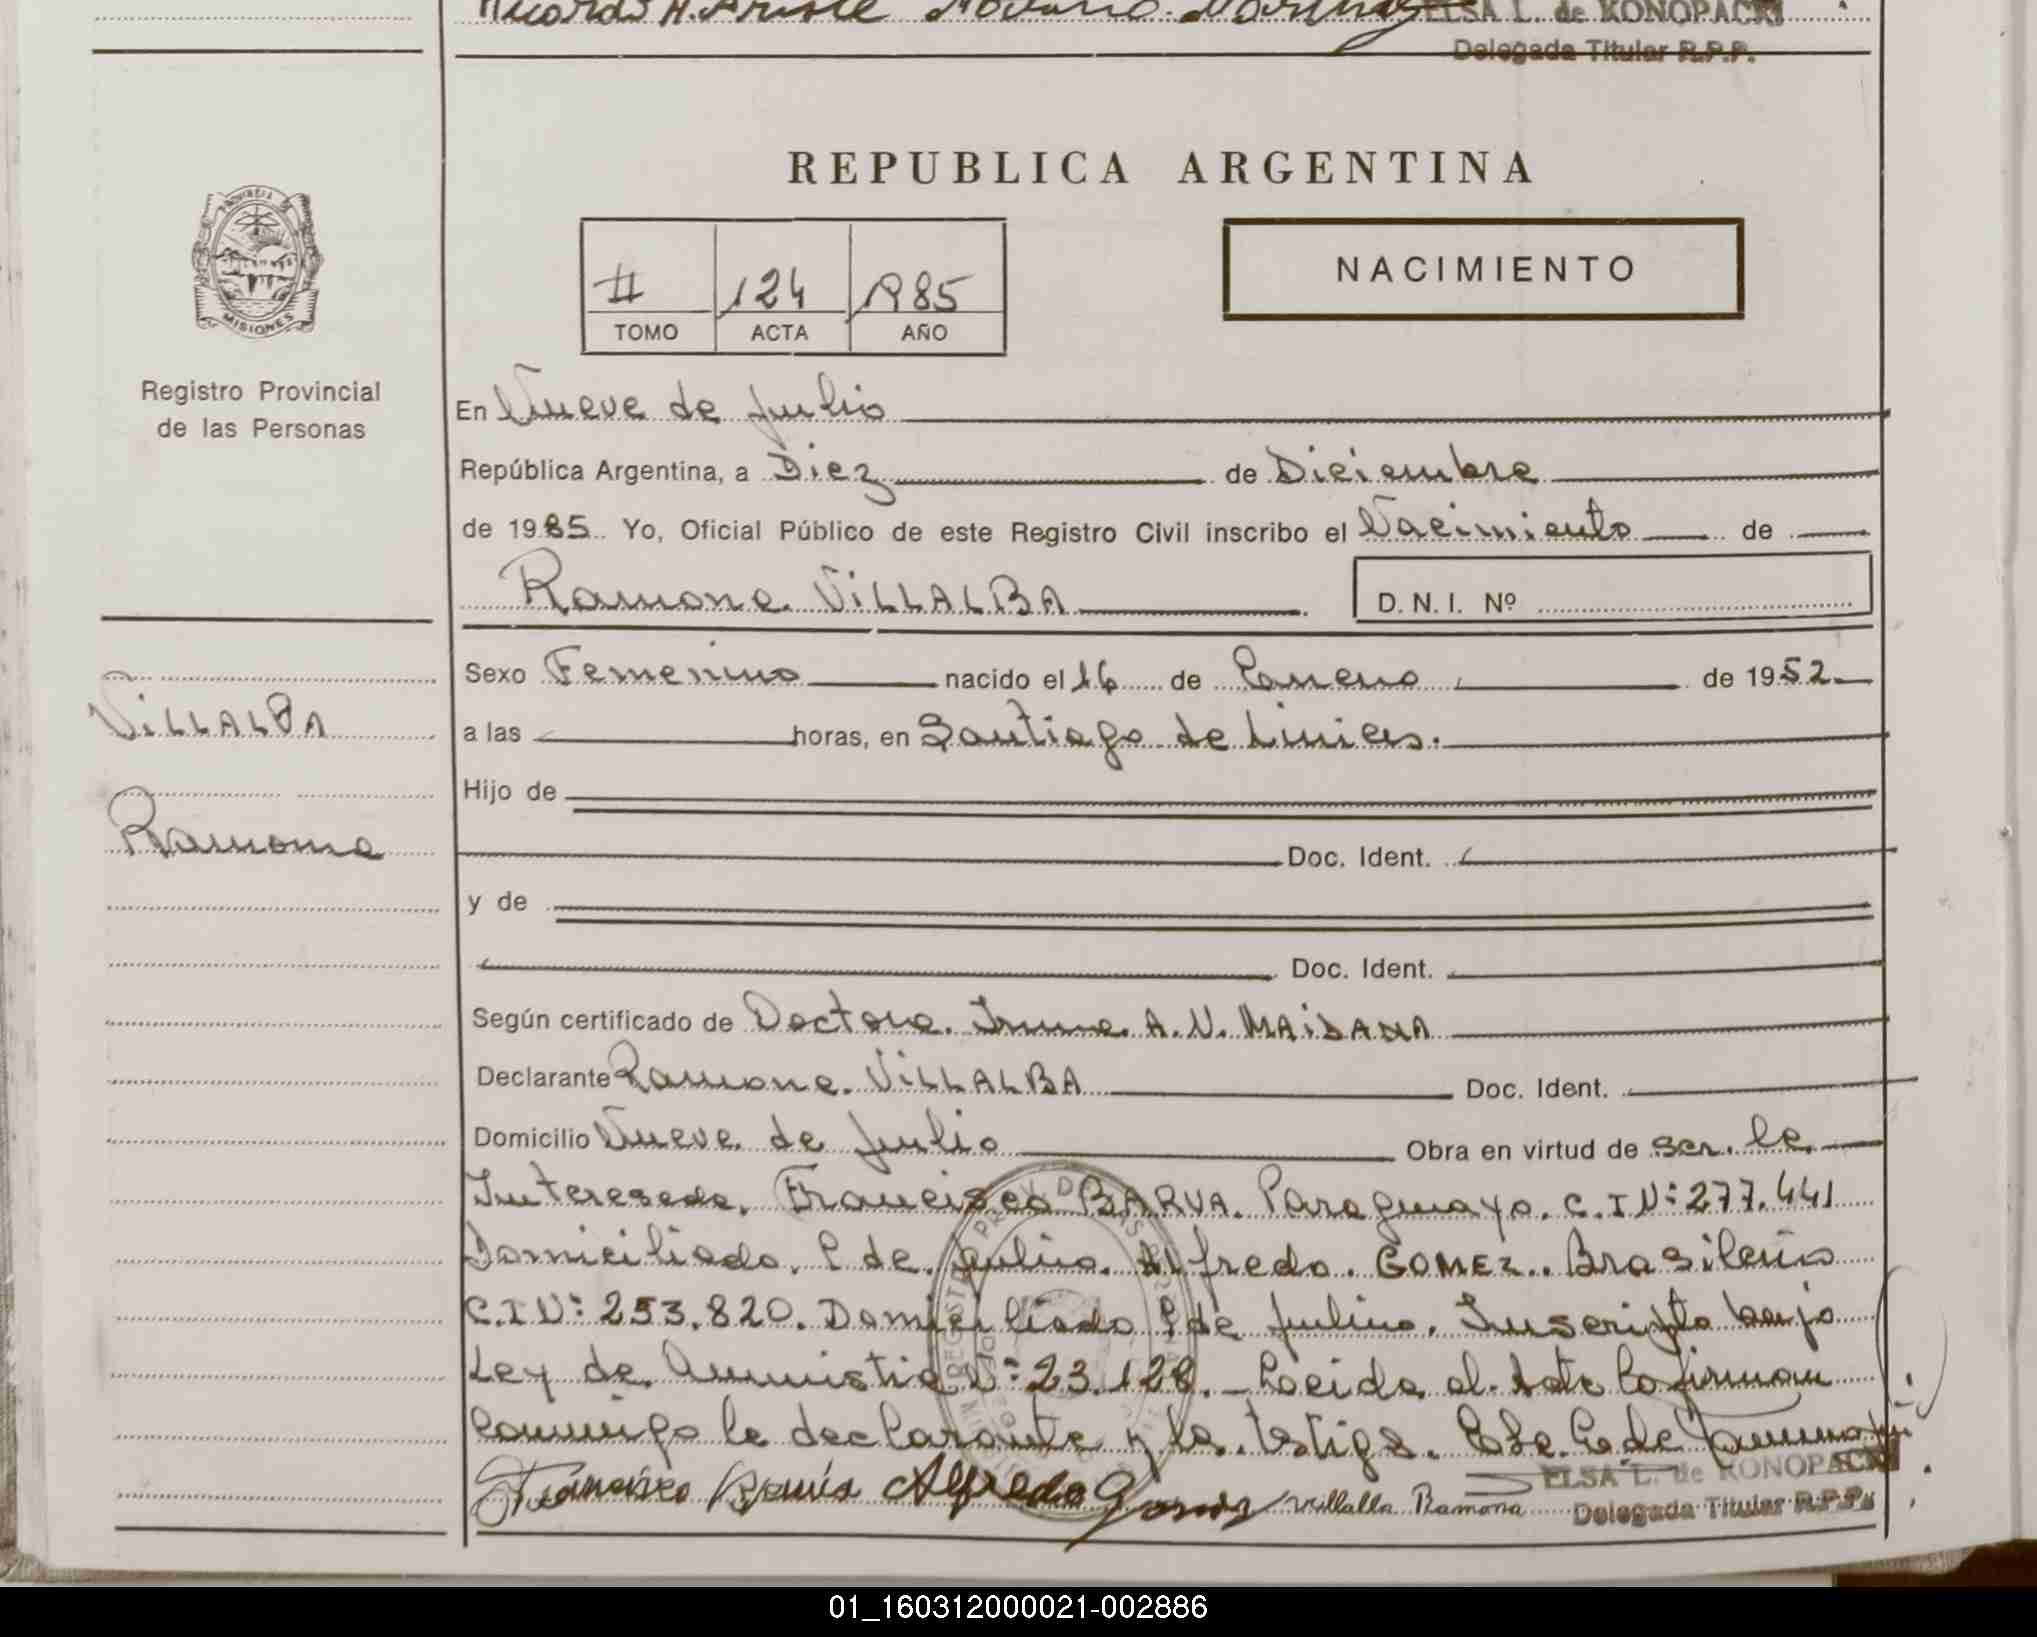 Delegada Titular R.P.P.
ELSA L. de KONOPACKI
REPUBLICA ARGENTINA
NACIMIENTO
II 124 1985
TOMO ACTA AÑO
MISIONES
Registro Provincial
de las Personas
En Nueve de Julio
República Argentina, a Diez de Diciembre
de 1985. Yo, Oficial Público de este Registro Civil inscribo el Nacimiento de
Ramona VILLALBA D.N.I. Nº
VILLALBA
Ramona
Sexo Femenino nacido el 16 de Enero de 1952
a las horas, en Santiago de Liniers.
Hijo de
Doc. Ident.
y de
Doc. Ident.
Según certificado de Doctora Irma A.N. MAIDANA
Declarante Ramona VILLALBA Doc. Ident.
Domicilio Nueve de Julio Obra en virtud de ser la
Interesada. Francisco BARUA. Paraguayo. C.I Nº 277.441
Domiciliado. 9 de Julio. Alfredo. GOMEZ. Brasileño
C.I Nº 253.820. Domiciliado 9 de Julio. Inscripta bajo
Ley de Amnistia Nº 23.128. Leida el Acta la firman
conmigo la declarante y los testigos.
Francisco Alfredo Gomez Villalba Ramona
ELSA L. de KONOPACKI
Delegada Titular R.P.P.
01_160312000021-002886